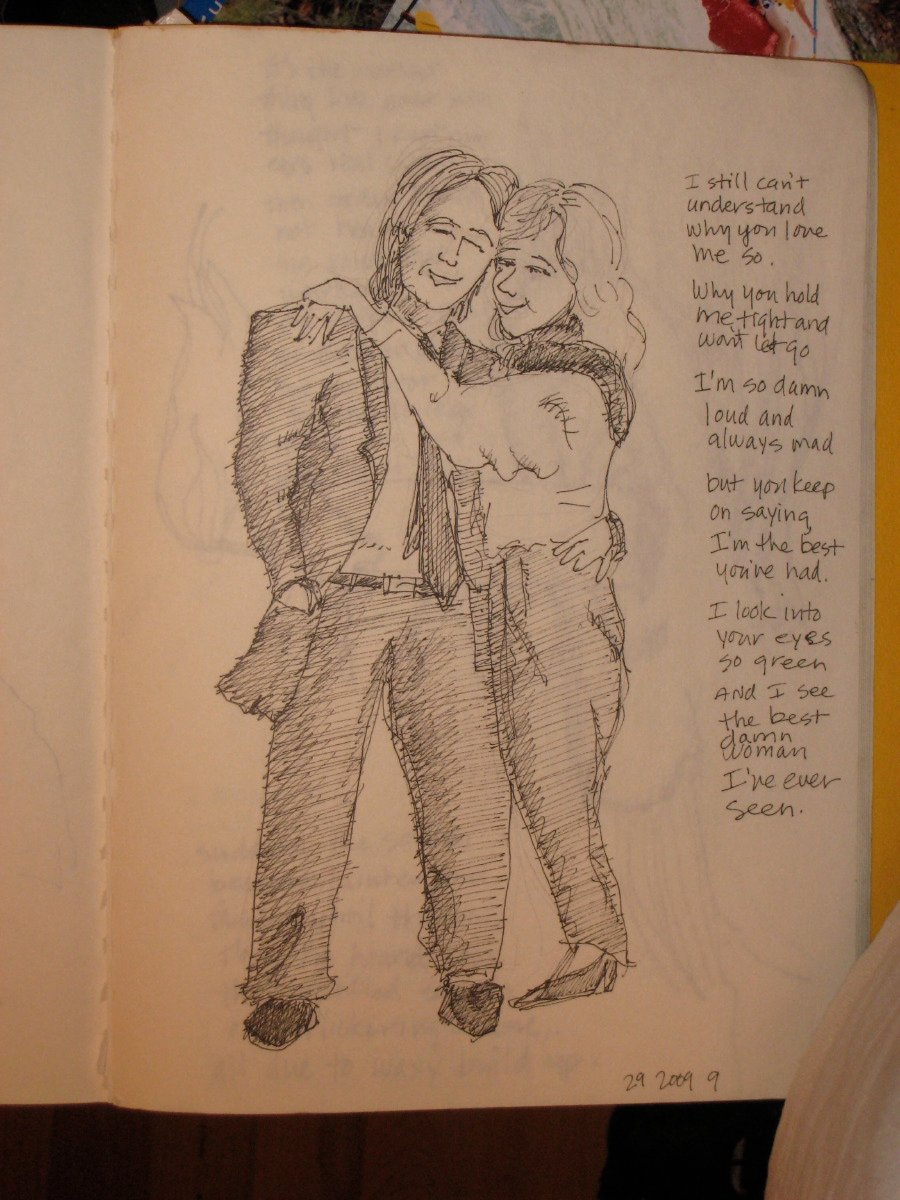 I still can't
understand
why you love
me so.
Why you hold
me tight and
wont let go
I'm so damn
loud and
always mad
but you keep
on saying
I'm the best
you've had.
I look into
your eyes
so green
AND I see
the best
damn
woman
I've ever
seen.
29 2009 9